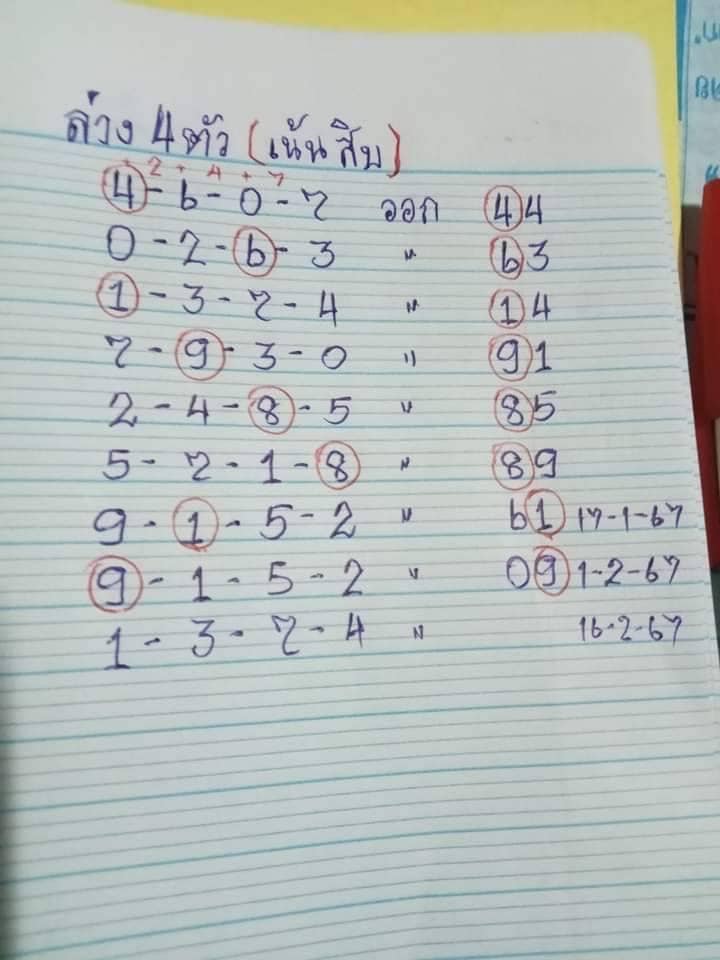 ล่าง 4 ตัว (เน้นสิบ)
+2+4+7
4-6-0-7 ออก 44
0-2-6-3 " 63
1-3-7-4 " 14
7-9-3-0 " 91
2-4-8-5 " 85
5-7-1-8 " 89
9-1-5-2 " 61 17-1-67
9-1-5-2 " 09 1-2-67
1-3-7-4 " 16-2-67